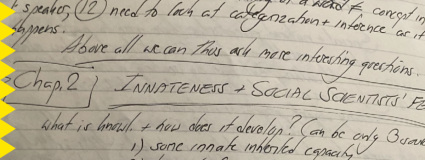 speaker, (12) need to look at categorization + inference as it
happens.
Above all we can thus ask more interesting questions.
Chap. 2 INNATENESS + SOCIAL SCIENTISTS' FE
what is knowl. + how does it develop? Can be only 3 sour
1) some innate inherited capacity